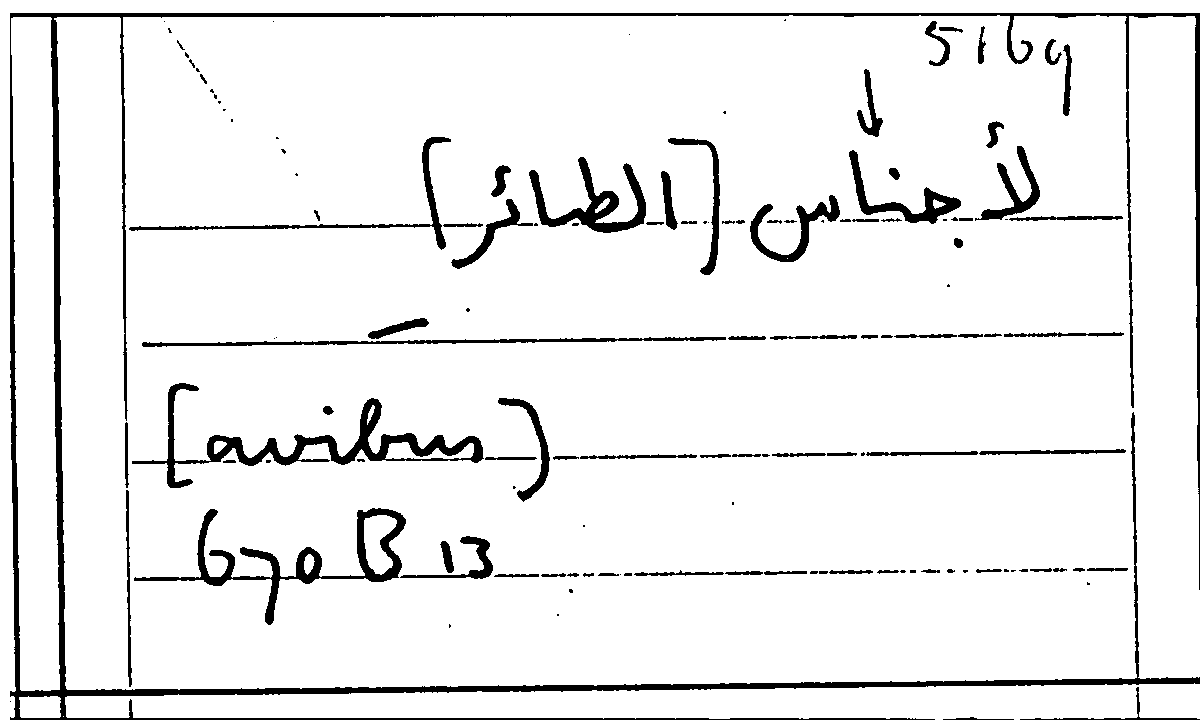 5169
↓
لأجناس [الطائر]
–
[avibus]
670 B 13